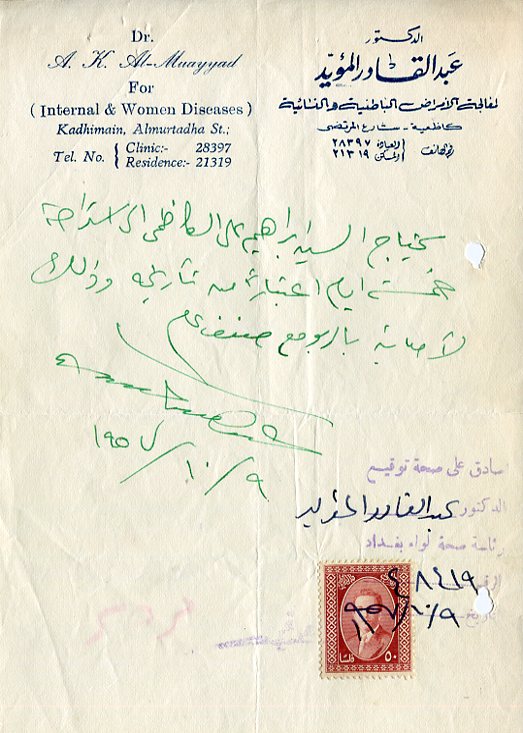 Dr.
A. K. Al-Muayyad
For
( Internal & Women Diseases )
Kadhimain, Almurtadha St.;
Tel. No. { Clinic:- 28397
Residence:- 21319
الدكتور
عبد القادر المؤيد
لمعالجة الامراض الباطنية والنسائية
كاظمية - شارع المرتضى
رقم الهاتف العيادة ٢٨٣٩٧
المسكن ٢١٣١٩
يحتاج السيد ابراهيم علي الكاظمي الى استراحة
خمسة ايام اعتباراً من تاريخه وذلك
لاصابته بالربو مع ضعف عام
١٩٥٧/١٠/٩
اصادق على صحة توقيع
الدكتور عبد القادر المؤيد
رئاسة صحة لواء بغداد
٨٤١٩
١٩٥٧/١٠/٩
٥٠ فلسا